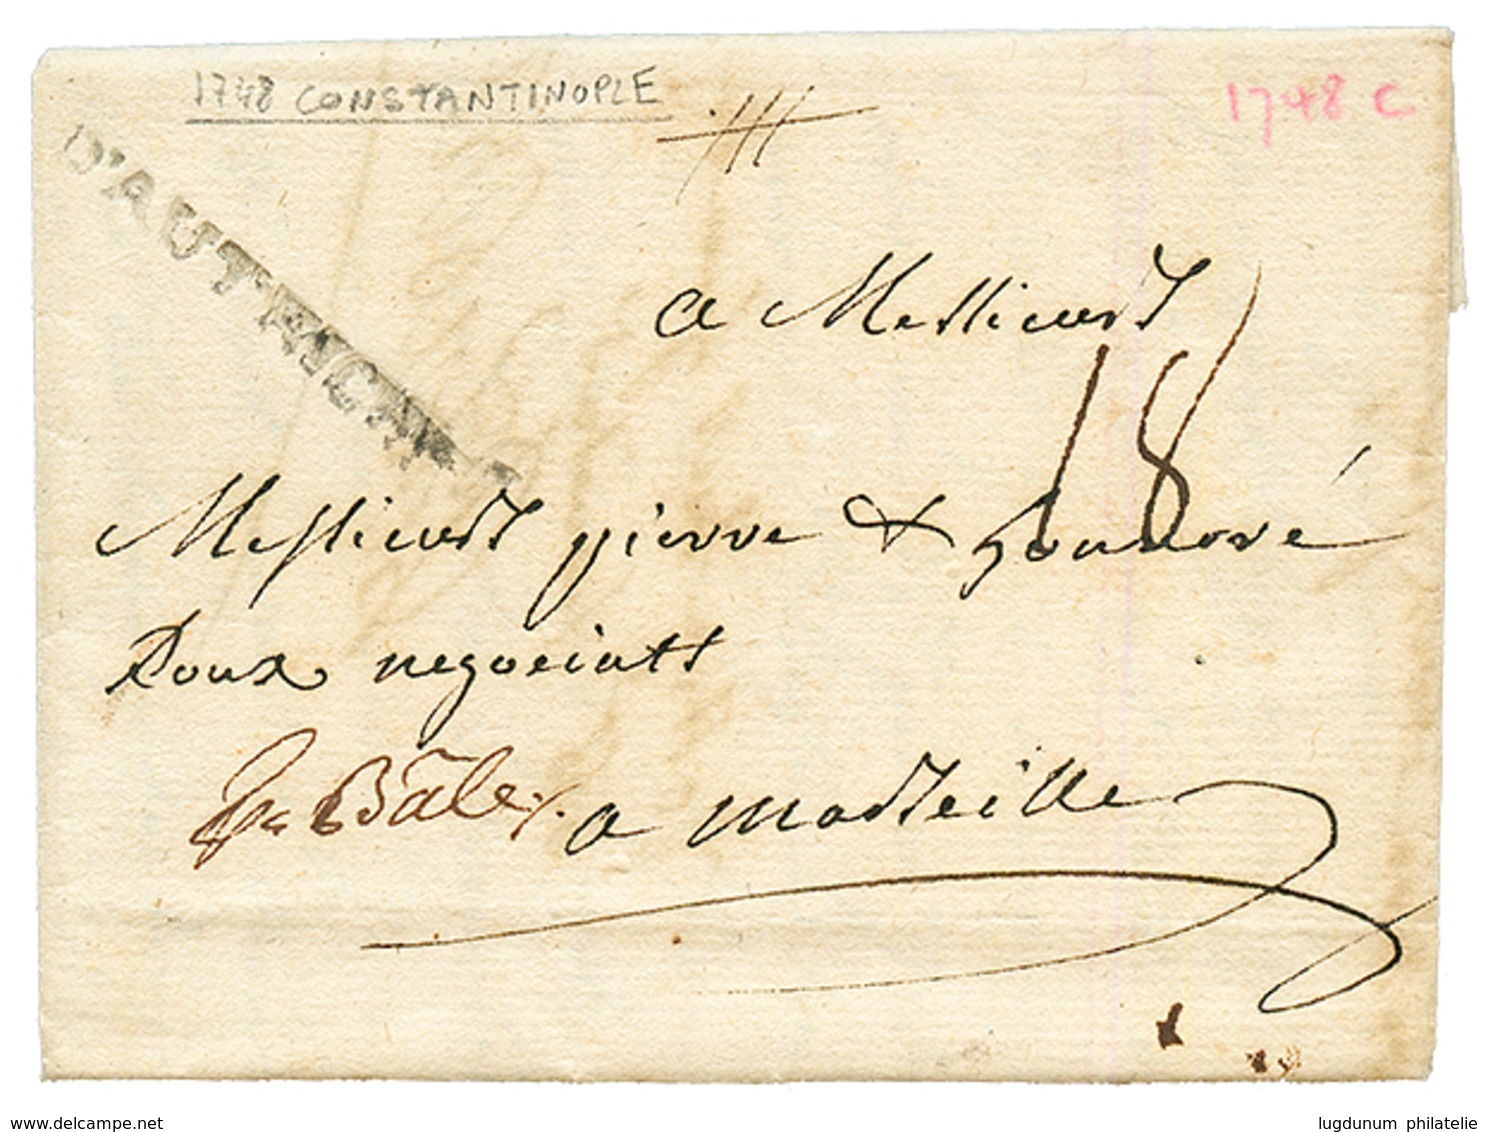 1748 CONSTANTINOPLE
1748 C
D'AUTRICHE
a Messieurs
18
Messieurs pierre & honnoré
Roux negociants
pr Bâle ./.
a marseille
www.delcampe.net
lugdunum philatelie